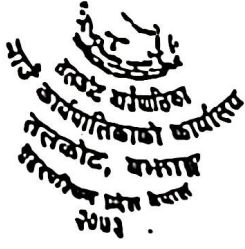 तलकोट गाउँपालिका
गाउँ कार्यपालिकाको कार्यालय
तलकोट, बझाङ
सुदूरपश्चिम प्रदेश नेपाल
२०७३